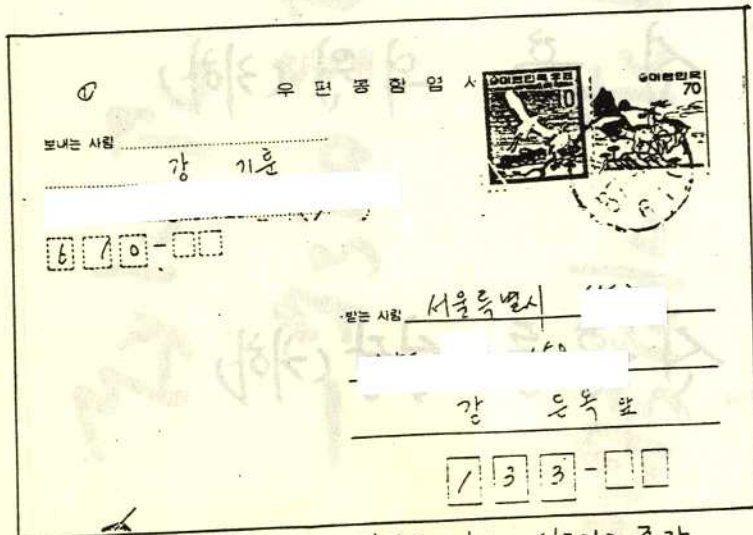 ①
우 편 봉 함 엽 서
대한민국우표
10
대한민국
70
보내는 사람
강 기훈
6 1 0 -
받는 사람 서울특별시
강 은옥 앞
1 3 3 -